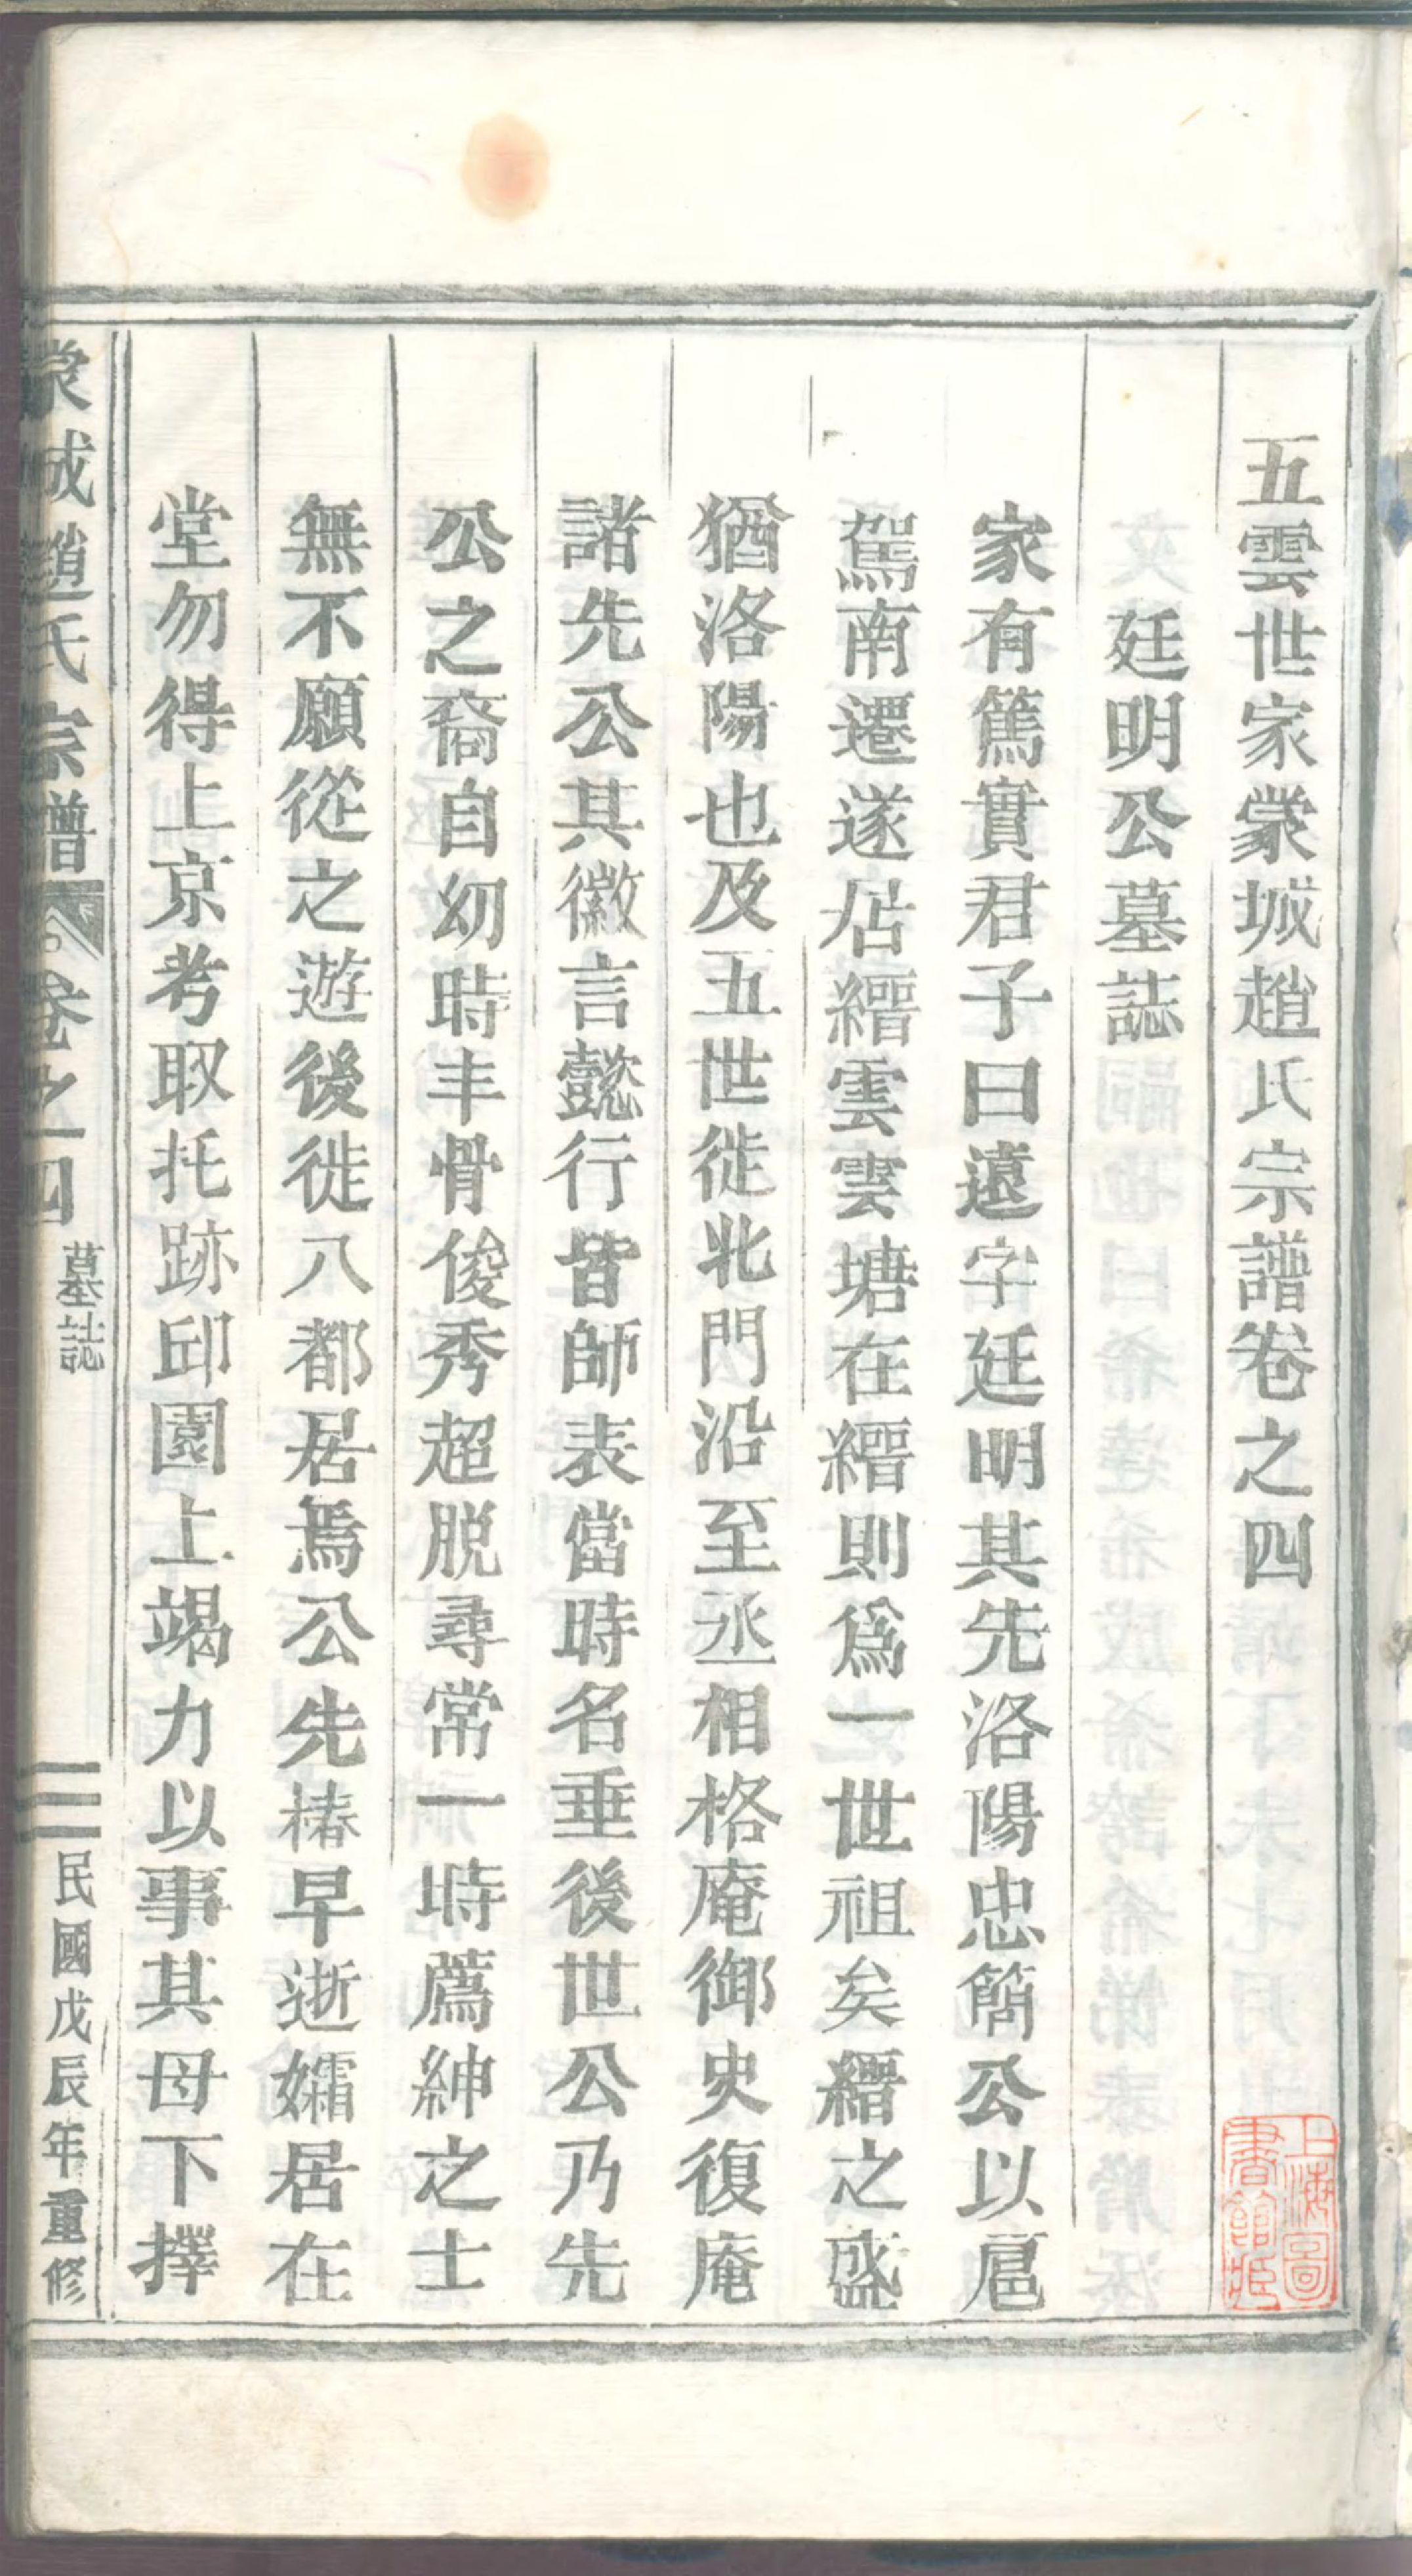 五雲世家蒙城趙氏宗譜卷之四
廷明公墓誌
家有篤實君子曰遠字廷明其先洛陽忠簡公以扈
駕南遷遂居縉雲雲塘在縉則爲一世祖矣縉之盛
猶洛陽也及五世徙北門沿至丞相格庵御史復庵
諸先公其徽言懿行皆師表當時名垂後世公乃先
公之裔自幼時丰骨俊秀超脱尋常一時薦紳之士
無不願從之遊後徙八都居焉公先椿早逝孀居在
堂勿得上京考取托跡邱園上竭力以事其母下擇
蒙城趙氏宗譜 卷之四 墓誌 民國戊辰年重修
上海圖書館藏